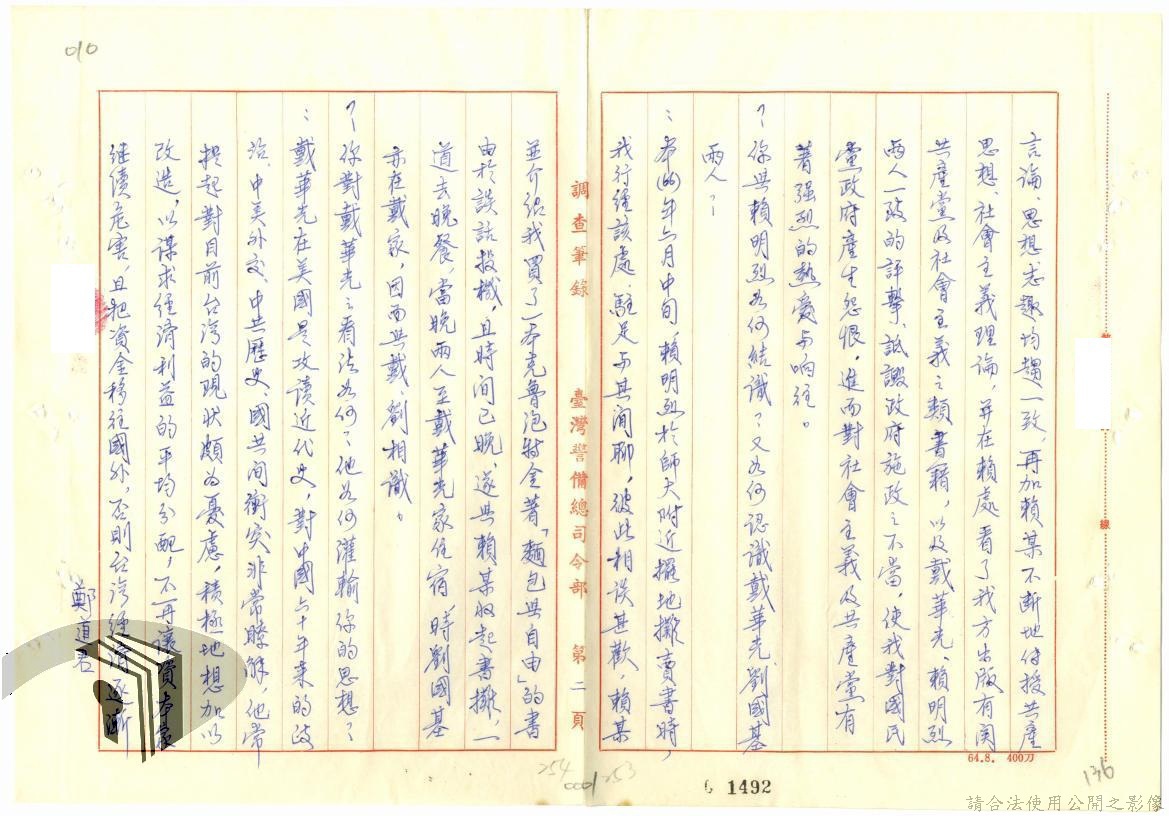 言論、思想志趣均趨一致，再加賴某不斷地傳授共產
思想、社會主義理論，并在賴處看了我方出版有関
共產黨及社會主義之類書籍，以及戴華光、賴明烈
两人一致的評擊、詆譭政府施政之不當，使我對國民
黨政府產生怨恨，進而對社會主義及共產黨有
著强烈的熱愛与响往。
？你與賴明烈如何結識？又如何認識戴華光、劉國基
两人？
：本(66)年六月中旬，賴明烈於師大附近擺地攤賣書時，
我行經該處，駐足与其间聊，彼此相談甚歡，賴某
調查筆錄 臺灣警備總司令部 第二頁
並介紹我買了一本克魯泡特金著「麵包與自由」的書
由於談話投機，且時间已晚，遂與賴某收起書攤，一
道去晚餐，當晚两人至戴華光家住宿，時劉國基
亦在戴家，因而與戴、劉相識。
？你對戴華光之看法如何？他如何灌輸你的思想？
：戴華光在美國是攻讀近代史，對中國六十年來的政
治、中美外交、中共歷史、國共间衝突非常瞭解，他常
提起對目前台灣的現狀頗為憂慮，積極地想加以
改造，以謀求經濟利益的平均分配，不再讓資本家
继續危害，且把資金移往國外，否則台灣經濟逐漸
鄭道君
010
64.8. 400刀
線
136
254
0001
253
1492
請合法使用公開之影像